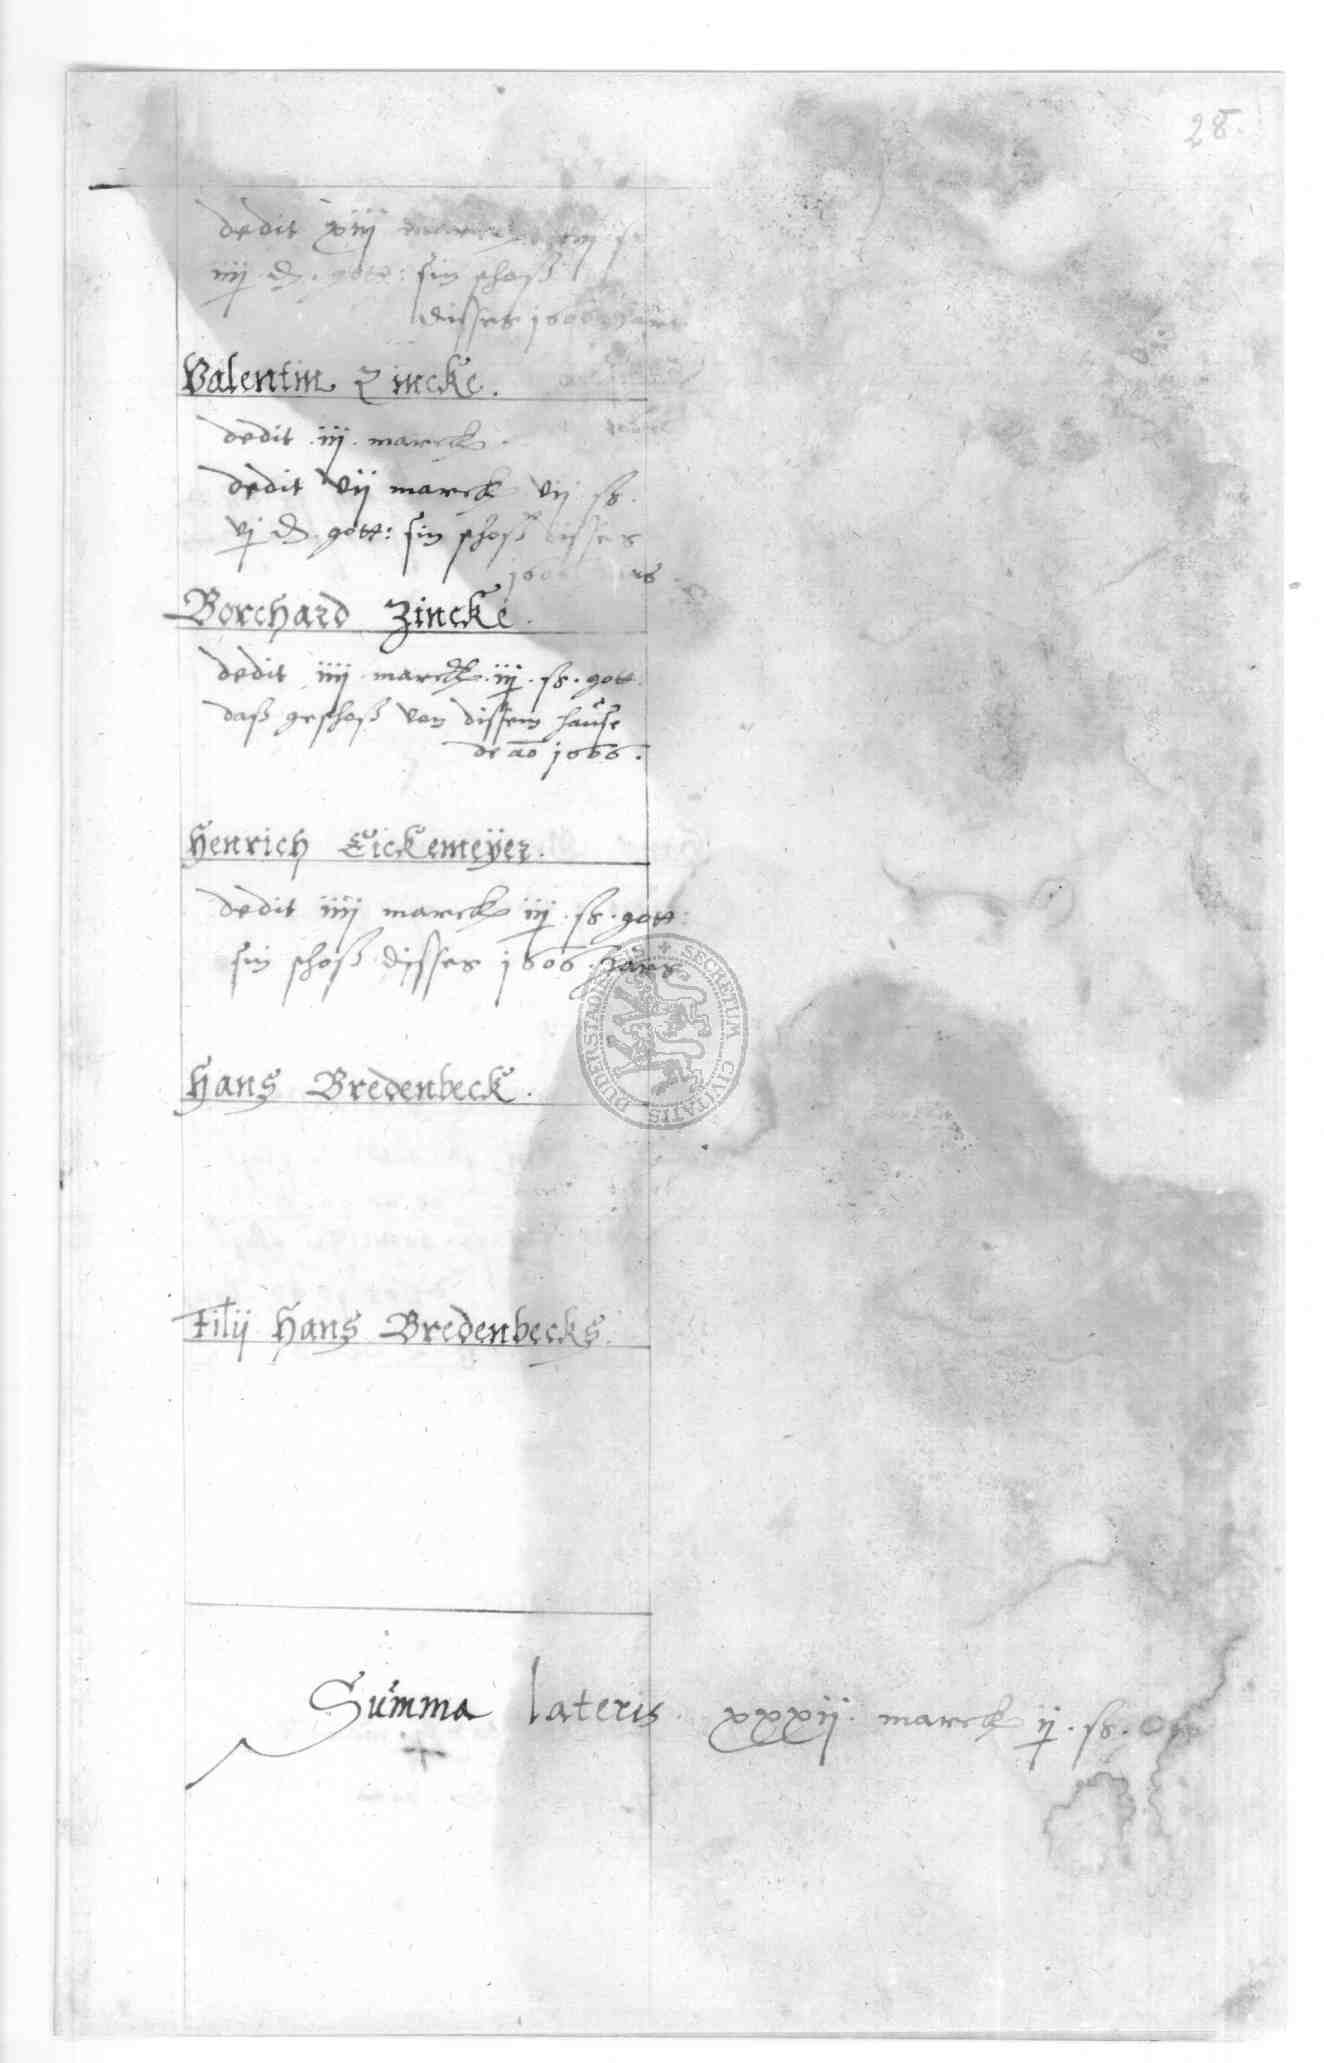 28.
dedit xiij marck iij ß
iiij d. gott: sin schoß
disses 1606 Jars
Valentin Zincke.
dedit .iij. marck.
dedit vij marck vij ß.
vj d. gott: sin schoß disses
1606 Jars
Borchard Zincke.
dedit iiij marck .iij. ß. gott
daß geschoß von dissem hause
de ao 1606.
Henrich Eickemeyer.
dedit iiij marck iij. ß. gott:
sin schoß disses 1606. Jars
SECRETUM CIVITATIS DUDERSTADIENSIS
Hans Bredenbeck.
Filij Hans Bredenbecks.
Summa lateris xxxij. marck ij. ß.